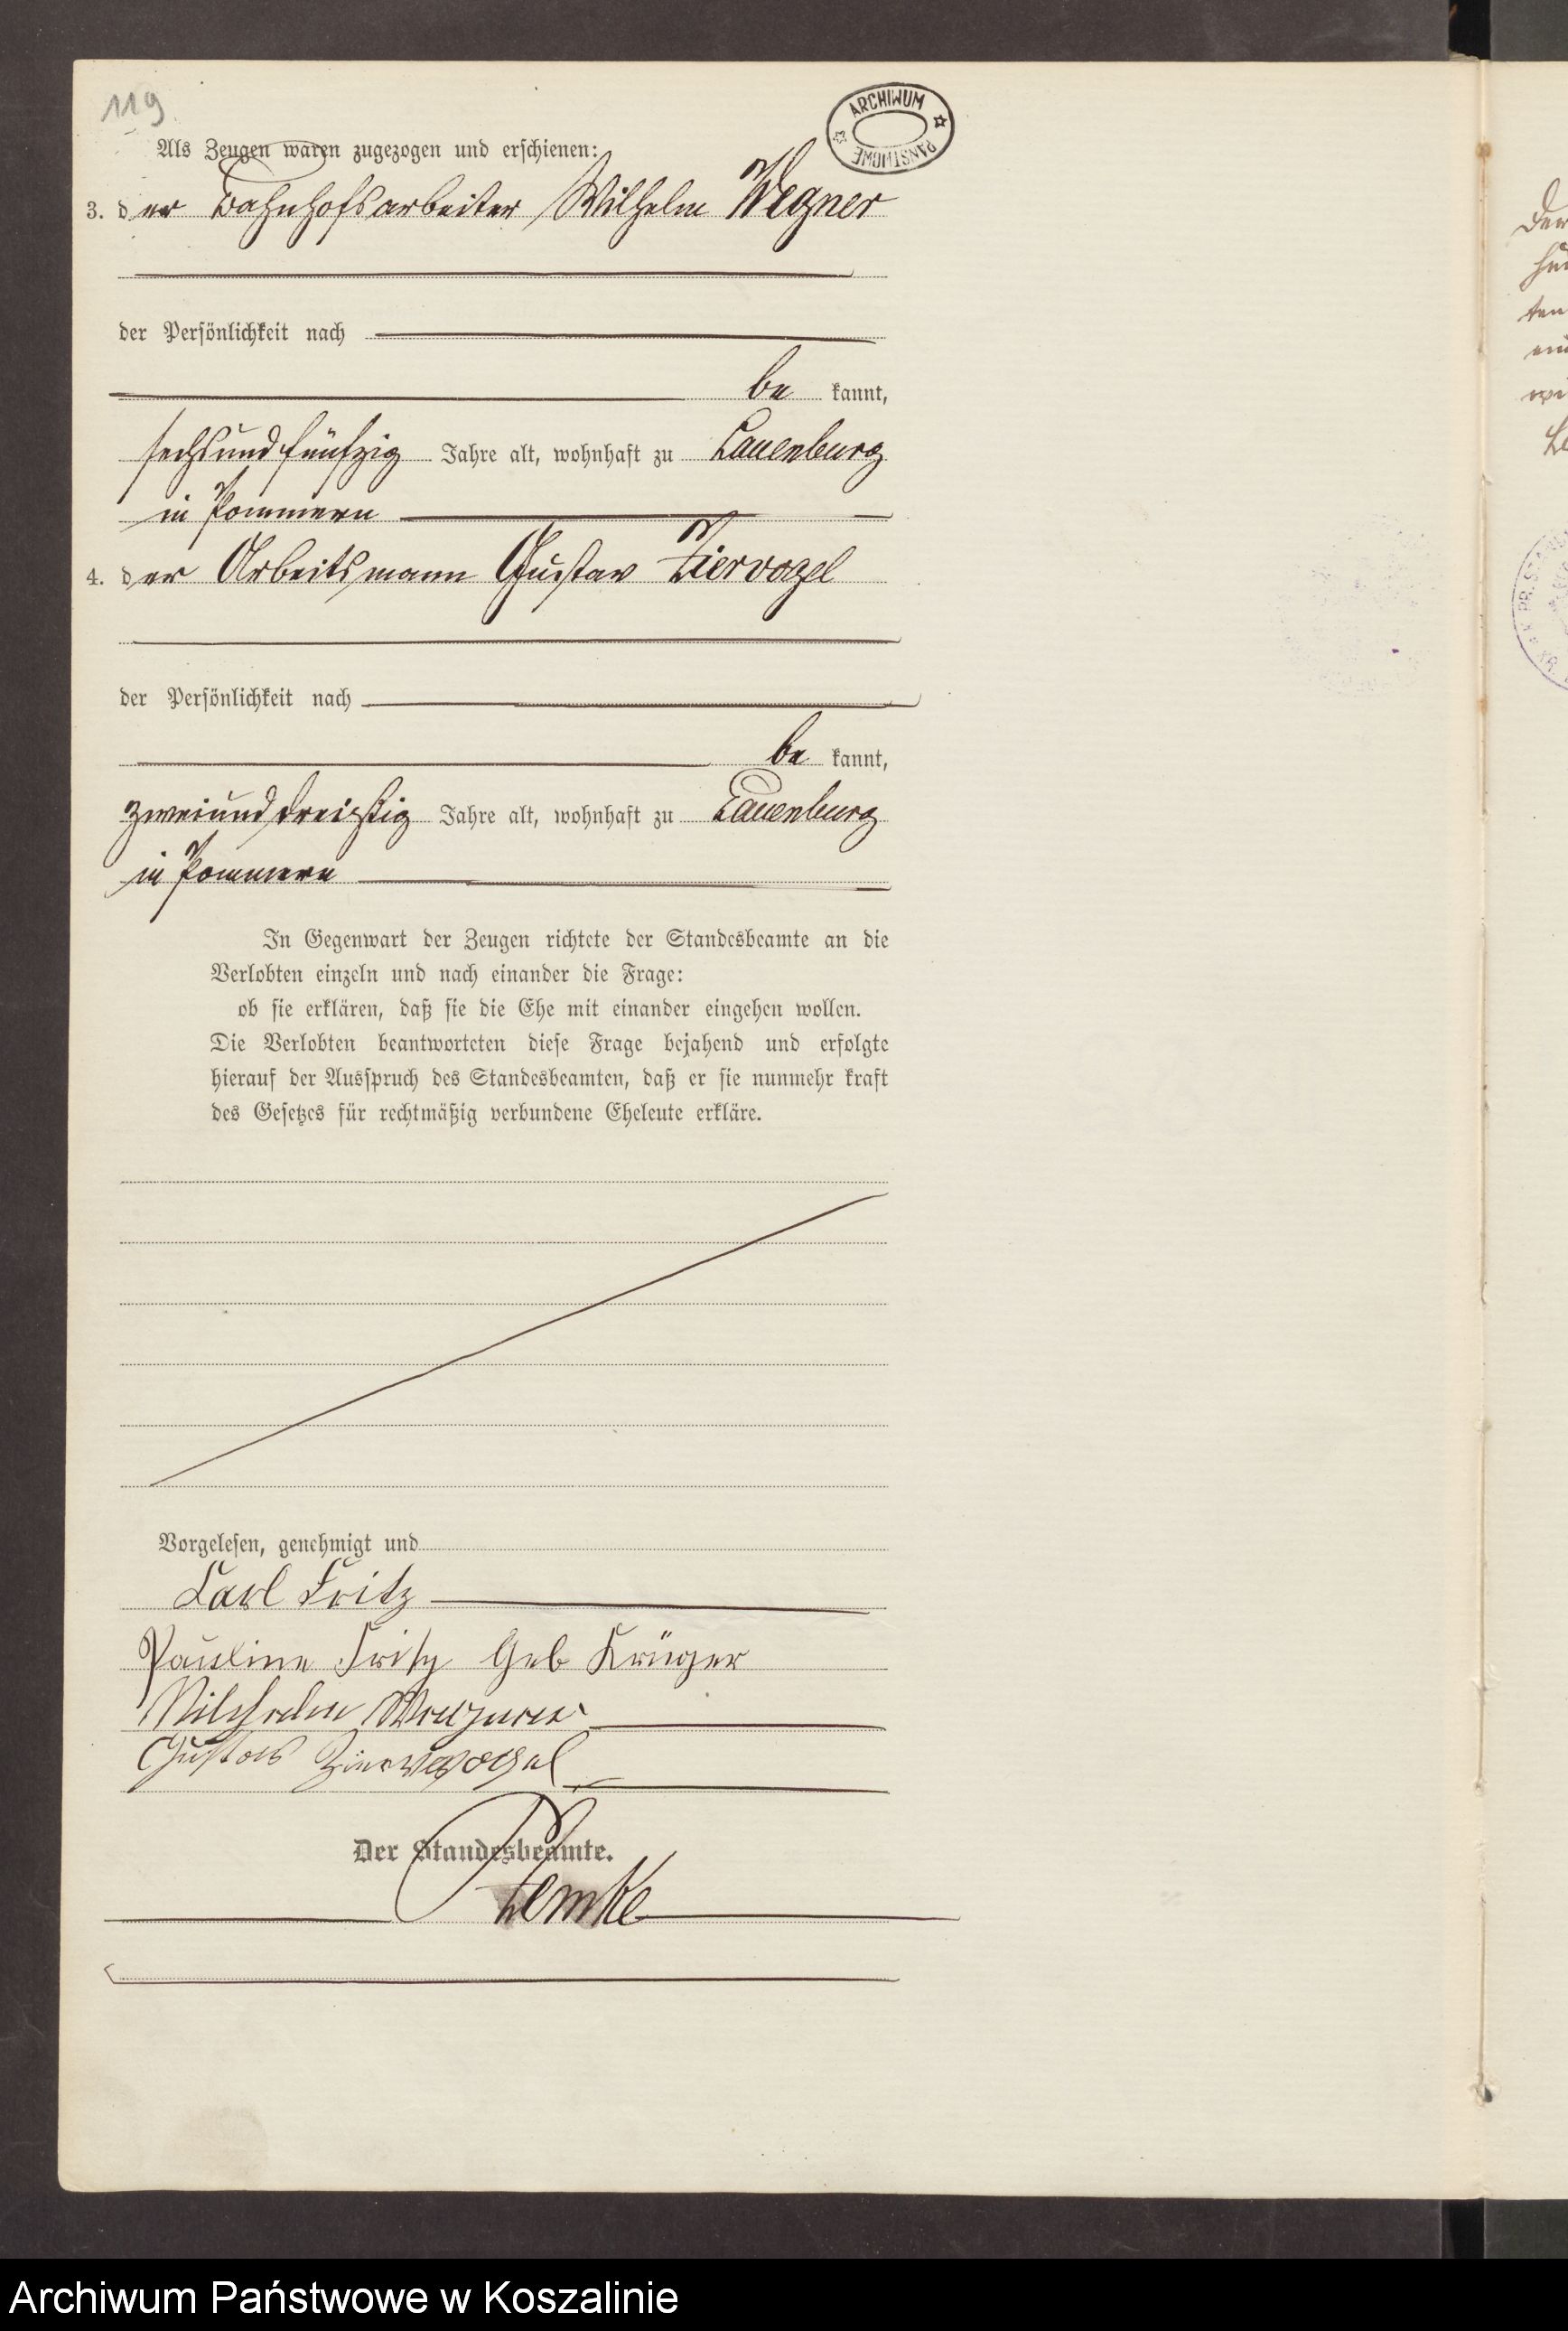 119
ARCHIWUM
PAŃSTWOWE
Als Zeugen waren zugezogen und erschienen:
3. der Bahnhofsarbeiter Wilhelm Wegner
der Persönlichkeit nach
be kannt,
sechsundfünfzig Jahre alt, wohnhaft zu Lauenburg
in Pommern
4. der Arbeitsmann Gustav Ziervogel
der Persönlichkeit nach
be kannt,
zweiunddreißig Jahre alt, wohnhaft zu Lauenburg
in Pommern
In Gegenwart der Zeugen richtete der Standesbeamte an die
Verlobten einzeln und nach einander die Frage:
ob sie erklären, daß sie die Ehe mit einander eingehen wollen.
Die Verlobten beantworteten diese Frage bejahend und erfolgte
hierauf der Ausspruch des Standesbeamten, daß er sie nunmehr kraft
des Gesetzes für rechtmäßig verbundene Eheleute erkläre.
Vorgelesen, genehmigt und
Carl Fritz
Pauline Fritz Geb Krüger
Wilhelm Wegner
Gustav Ziervogel
Der Standesbeamte.
Lemke
Archiwum Państwowe w Koszalinie